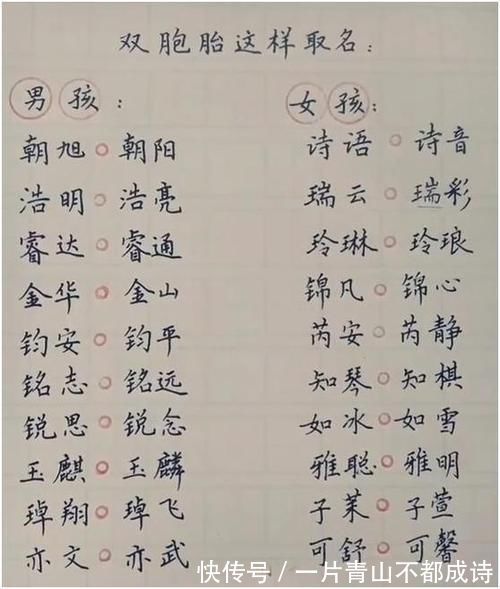 双胞胎这样取名：
男孩：
朝旭。朝阳
浩明。浩亮
睿达。睿通
金华。金山
钧安。钧平
铭志。铭远
锐思。锐念
玉麒。玉麟
琸翔。琸飞
亦文。亦武
女孩：
诗语。诗音
瑞云。瑞彩
玲琳。玲琅
锦凡。锦心
芮安。芮静
知琴。知棋
如冰。如雪
雅聪。雅明
子茉。子萱
可舒。可馨
快传号／一片青山不都成诗